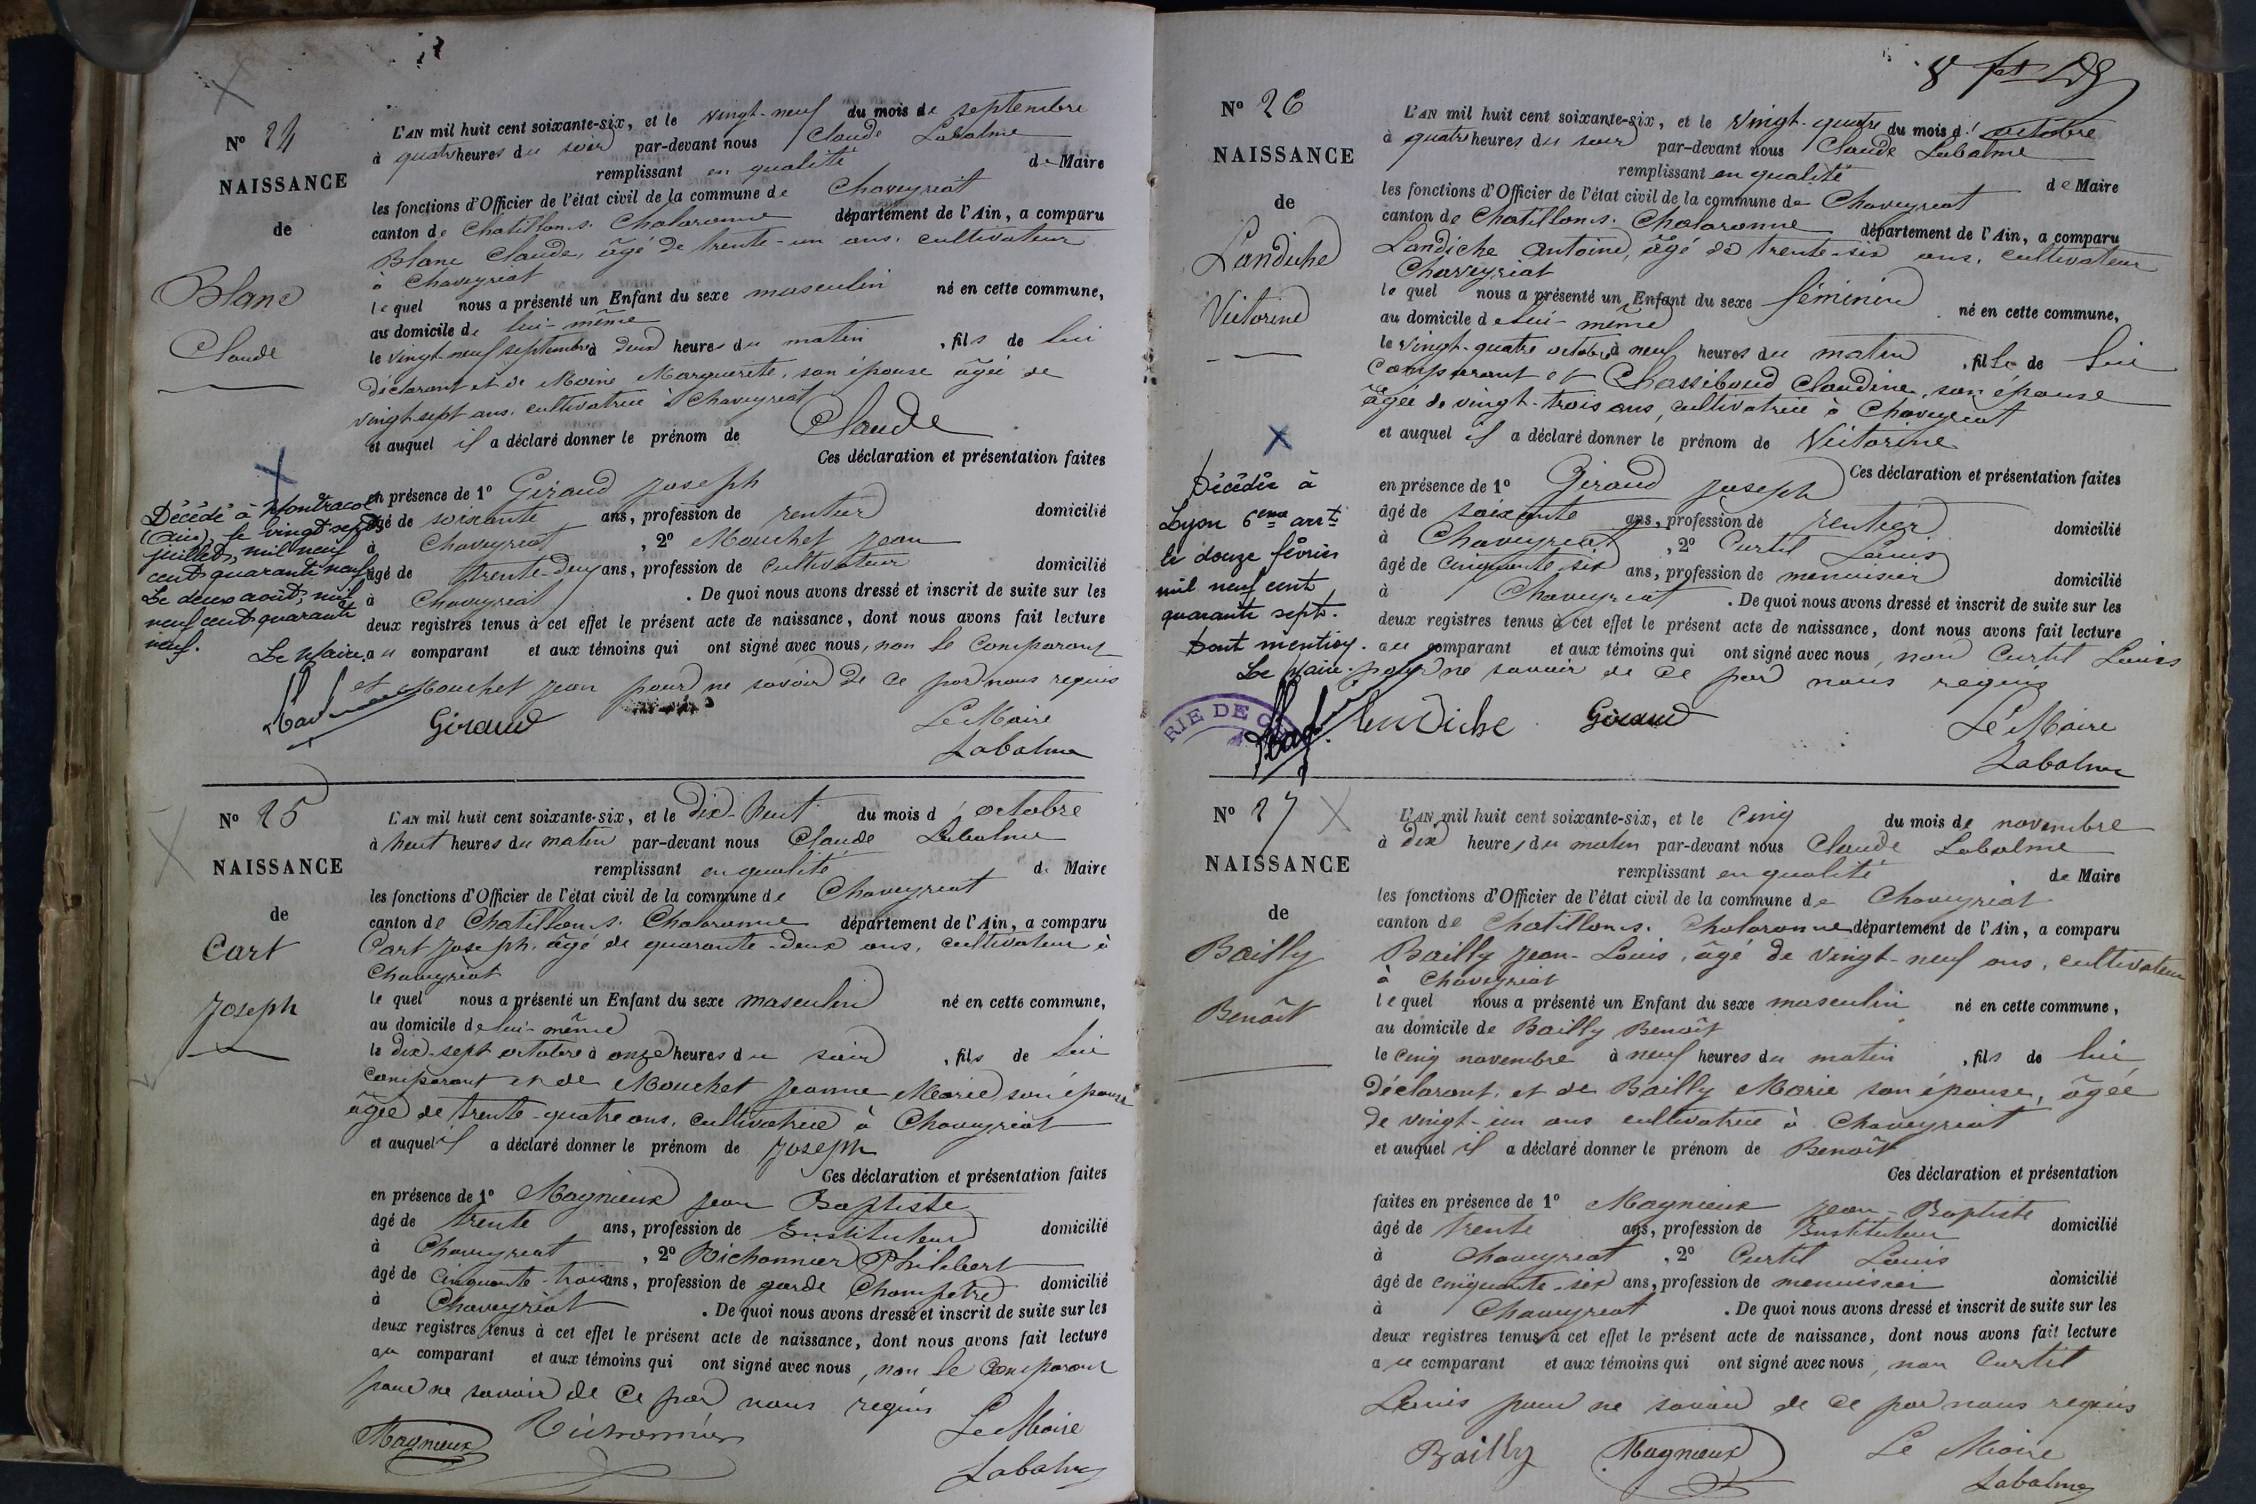 N° 24
NAISSANCE
de
Blanc
Claude
L'AN mil huit cent soixante-six, et le vingt-neuf du mois de septembre
à quatre heures du soir par-devant nous Claude Labalme
remplissant en qualité de Maire
les fonctions d'Officier de l'état civil de la commune de Chaveyriat
canton de Chatillon s. Chalaronne département de l'Ain, a comparu
Blanc Claude, âgé de trente-un ans, cultivateur
à Chaveyriat
lequel nous a présenté un Enfant du sexe masculin né en cette commune,
au domicile de lui-même
le vingt-neuf septembre à deux heures du matin, fils de lui
déclarant et de Moine Marguerite, son épouse âgée de
vingt-sept ans, cultivatrice à Chaveyriat
et auquel il a déclaré donner le prénom de Claude
Ces déclaration et présentation faites
en présence de 1° Giraud Joseph
âgé de soixante ans, profession de rentier domicilié
à Chaveyriat, 2° Mouchet Jean
âgé de trente-deux ans, profession de cultivateur domicilié
à Chaveyriat. De quoi nous avons dressé et inscrit de suite sur les
deux registres tenus à cet effet le présent acte de naissance, dont nous avons fait lecture
au comparant et aux témoins qui ont signé avec nous, non le comparant
et Mouchet Jean pour ne savoir de ce par nous requis
Giraud
Le Maire
Labalme
Décédé à Montracol
(Ain), le vingt sept
juillet, mil neuf
cent quarante neuf
Le deux août, mil
neuf cent quarante
neuf.
Le Maire
N° 25
NAISSANCE
de
Cart
Joseph
L'AN mil huit cent soixante-six, et le dix-huit du mois d'octobre
à huit heures du matin par-devant nous Claude Labalme
remplissant en qualité de Maire
les fonctions d'Officier de l'état civil de la commune de Chaveyriat
canton de Chatillon s. Chalaronne département de l'Ain, a comparu
Cart Joseph, âgé de quarante-deux ans, cultivateur à
Chaveyriat
lequel nous a présenté un Enfant du sexe masculin né en cette commune,
au domicile de lui-même
le dix-sept octobre à onze heures du soir, fils de lui
comparant et de Mouchet Jeanne Marie son épouse
âgée de trente-quatre ans, cultivatrice à Chaveyriat
et auquel il a déclaré donner le prénom de Joseph
Ces déclaration et présentation faites
en présence de 1° Magnieux Jean Baptiste
âgé de trente ans, profession de Instituteur domicilié
à Chaveyriat, 2° Bichonnier Philibert
âgé de cinquante-trois ans, profession de garde Champêtre domicilié
à Chaveyriat. De quoi nous avons dressé et inscrit de suite sur les
deux registres tenus à cet effet le présent acte de naissance, dont nous avons fait lecture
au comparant et aux témoins qui ont signé avec nous, non le comparant
pour ne savoir de ce par nous requis
Magnieux Bichonnier
Le Maire
Labalme
N° 26
NAISSANCE
de
Landiche
Victorine
L'AN mil huit cent soixante-six, et le vingt-quatre du mois d'octobre
à quatre heures du soir par-devant nous Claude Labalme
remplissant en qualité de Maire
les fonctions d'Officier de l'état civil de la commune de Chaveyriat
canton de Chatillon s. Chalaronne département de l'Ain, a comparu
Landiche Antoine, âgé de trente-six ans, cultivateur
Chaveyriat
lequel nous a présenté un Enfant du sexe féminin né en cette commune,
au domicile de lui-même
le vingt-quatre octobre à neuf heures du matin, fille de lui
comparant et Chassiboud Claudine, son épouse
âgée de vingt-trois ans, cultivatrice à Chaveyriat
et auquel il a déclaré donner le prénom de Victorine
Ces déclaration et présentation faites
en présence de 1° Giraud Joseph
âgé de soixante ans, profession de rentier domicilié
à Chaveyriat, 2° Curtil Louis
âgé de cinquante-six ans, profession de menuisier domicilié
à Chaveyriat. De quoi nous avons dressé et inscrit de suite sur les
deux registres tenus à cet effet le présent acte de naissance, dont nous avons fait lecture
au comparant et aux témoins qui ont signé avec nous, non Curtil Louis
pour ne savoir de ce par nous requis
Landiche Giraud
Le Maire
Labalme
Décédée à
Lyon 6eme arrt
le douze février
mil neuf cent
quarante sept.
Dont mention.
Le Maire
RIE DE C
N° 27
NAISSANCE
de
Bailly
Benoît
L'AN mil huit cent soixante-six, et le cinq du mois de novembre
à dix heures du matin par-devant nous Claude Labalme
remplissant en qualité de Maire
les fonctions d'Officier de l'état civil de la commune de Chaveyriat
canton de Chatillon s. Chalaronne département de l'Ain, a comparu
Bailly Jean-Louis, âgé de vingt-neuf ans, cultivateur
à Chaveyriat
lequel nous a présenté un Enfant du sexe masculin né en cette commune,
au domicile de Bailly Benoît
le cinq novembre à neuf heures du matin, fils de lui
déclarant, et de Bailly Marie son épouse, âgée
de vingt-un ans cultivatrice à Chaveyriat
et auquel il a déclaré donner le prénom de Benoît
Ces déclaration et présentation
faites en présence de 1° Magnieux Jean-Baptiste
âgé de trente ans, profession de Instituteur domicilié
à Chaveyriat, 2° Curtil Louis
âgé de cinquante-six ans, profession de menuisier domicilié
à Chaveyriat. De quoi nous avons dressé et inscrit de suite sur les
deux registres tenus à cet effet le présent acte de naissance, dont nous avons fait lecture
au comparant et aux témoins qui ont signé avec nous, non Curtil
Louis pour ne savoir de ce par nous requis
Bailly Magnieux
Le Maire
Labalme